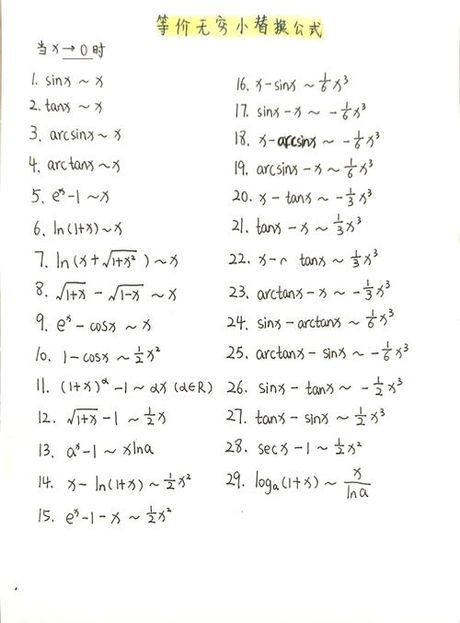 等价无穷小替换公式
当 x → 0 时
1. sinx ~ x
2. tanx ~ x
3. arcsinx ~ x
4. arctanx ~ x
5. eˣ-1 ~ x
6. ln(1+x) ~ x
7. ln(x+√(1+x²)) ~ x
8. √(1+x) - √(1-x) ~ x
9. eˣ - cosx ~ x
10. 1-cosx ~ ½x²
11. (1+x)^α -1 ~ αx (α∈R)
12. √(1+x) -1 ~ ½x
13. aˣ-1 ~ xlna
14. x-ln(1+x) ~ ½x²
15. eˣ-1-x ~ ½x²
16. x-sinx ~ 1/6 x³
17. sinx-x ~ -1/6 x³
18. x-arcsinx ~ -1/6 x³
19. arcsinx-x ~ 1/6 x³
20. x-tanx ~ -1/3 x³
21. tanx-x ~ 1/3 x³
22. x- tanx ~ 1/3 x³
23. arctanx-x ~ -1/3 x³
24. sinx-arctanx ~ 1/6 x³
25. arctanx-sinx ~ -1/6 x³
26. sinx-tanx ~ -1/2 x³
27. tanx-sinx ~ 1/2 x³
28. secx-1 ~ ½x²
29. logₐ(1+x) ~ x/lna